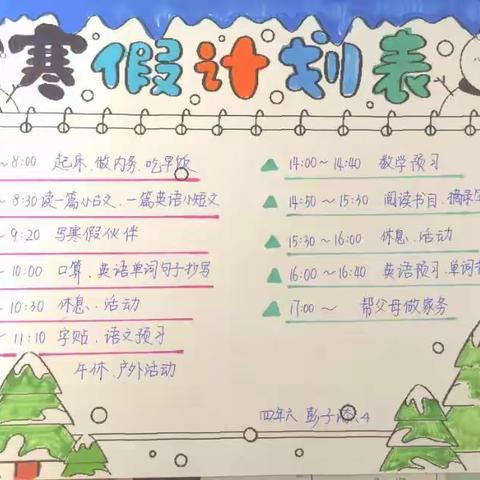 寒假计划表
~8:00 起床、做内务、吃早饭
~8:30 读一篇小古文、一篇英语小短文
~9:20 写寒假伙伴
~10:00 口算、英语单词句子抄写
~10:30 休息、活动
~11:10 字贴、语文预习
午休、户外活动
14:00~14:40 数学预习
14:50~15:30 阅读书目、摘录
15:30~16:00 休息、活动
16:00~16:40 英语预习、单词
17:00~ 帮父母做家务
四年六 彭子 4